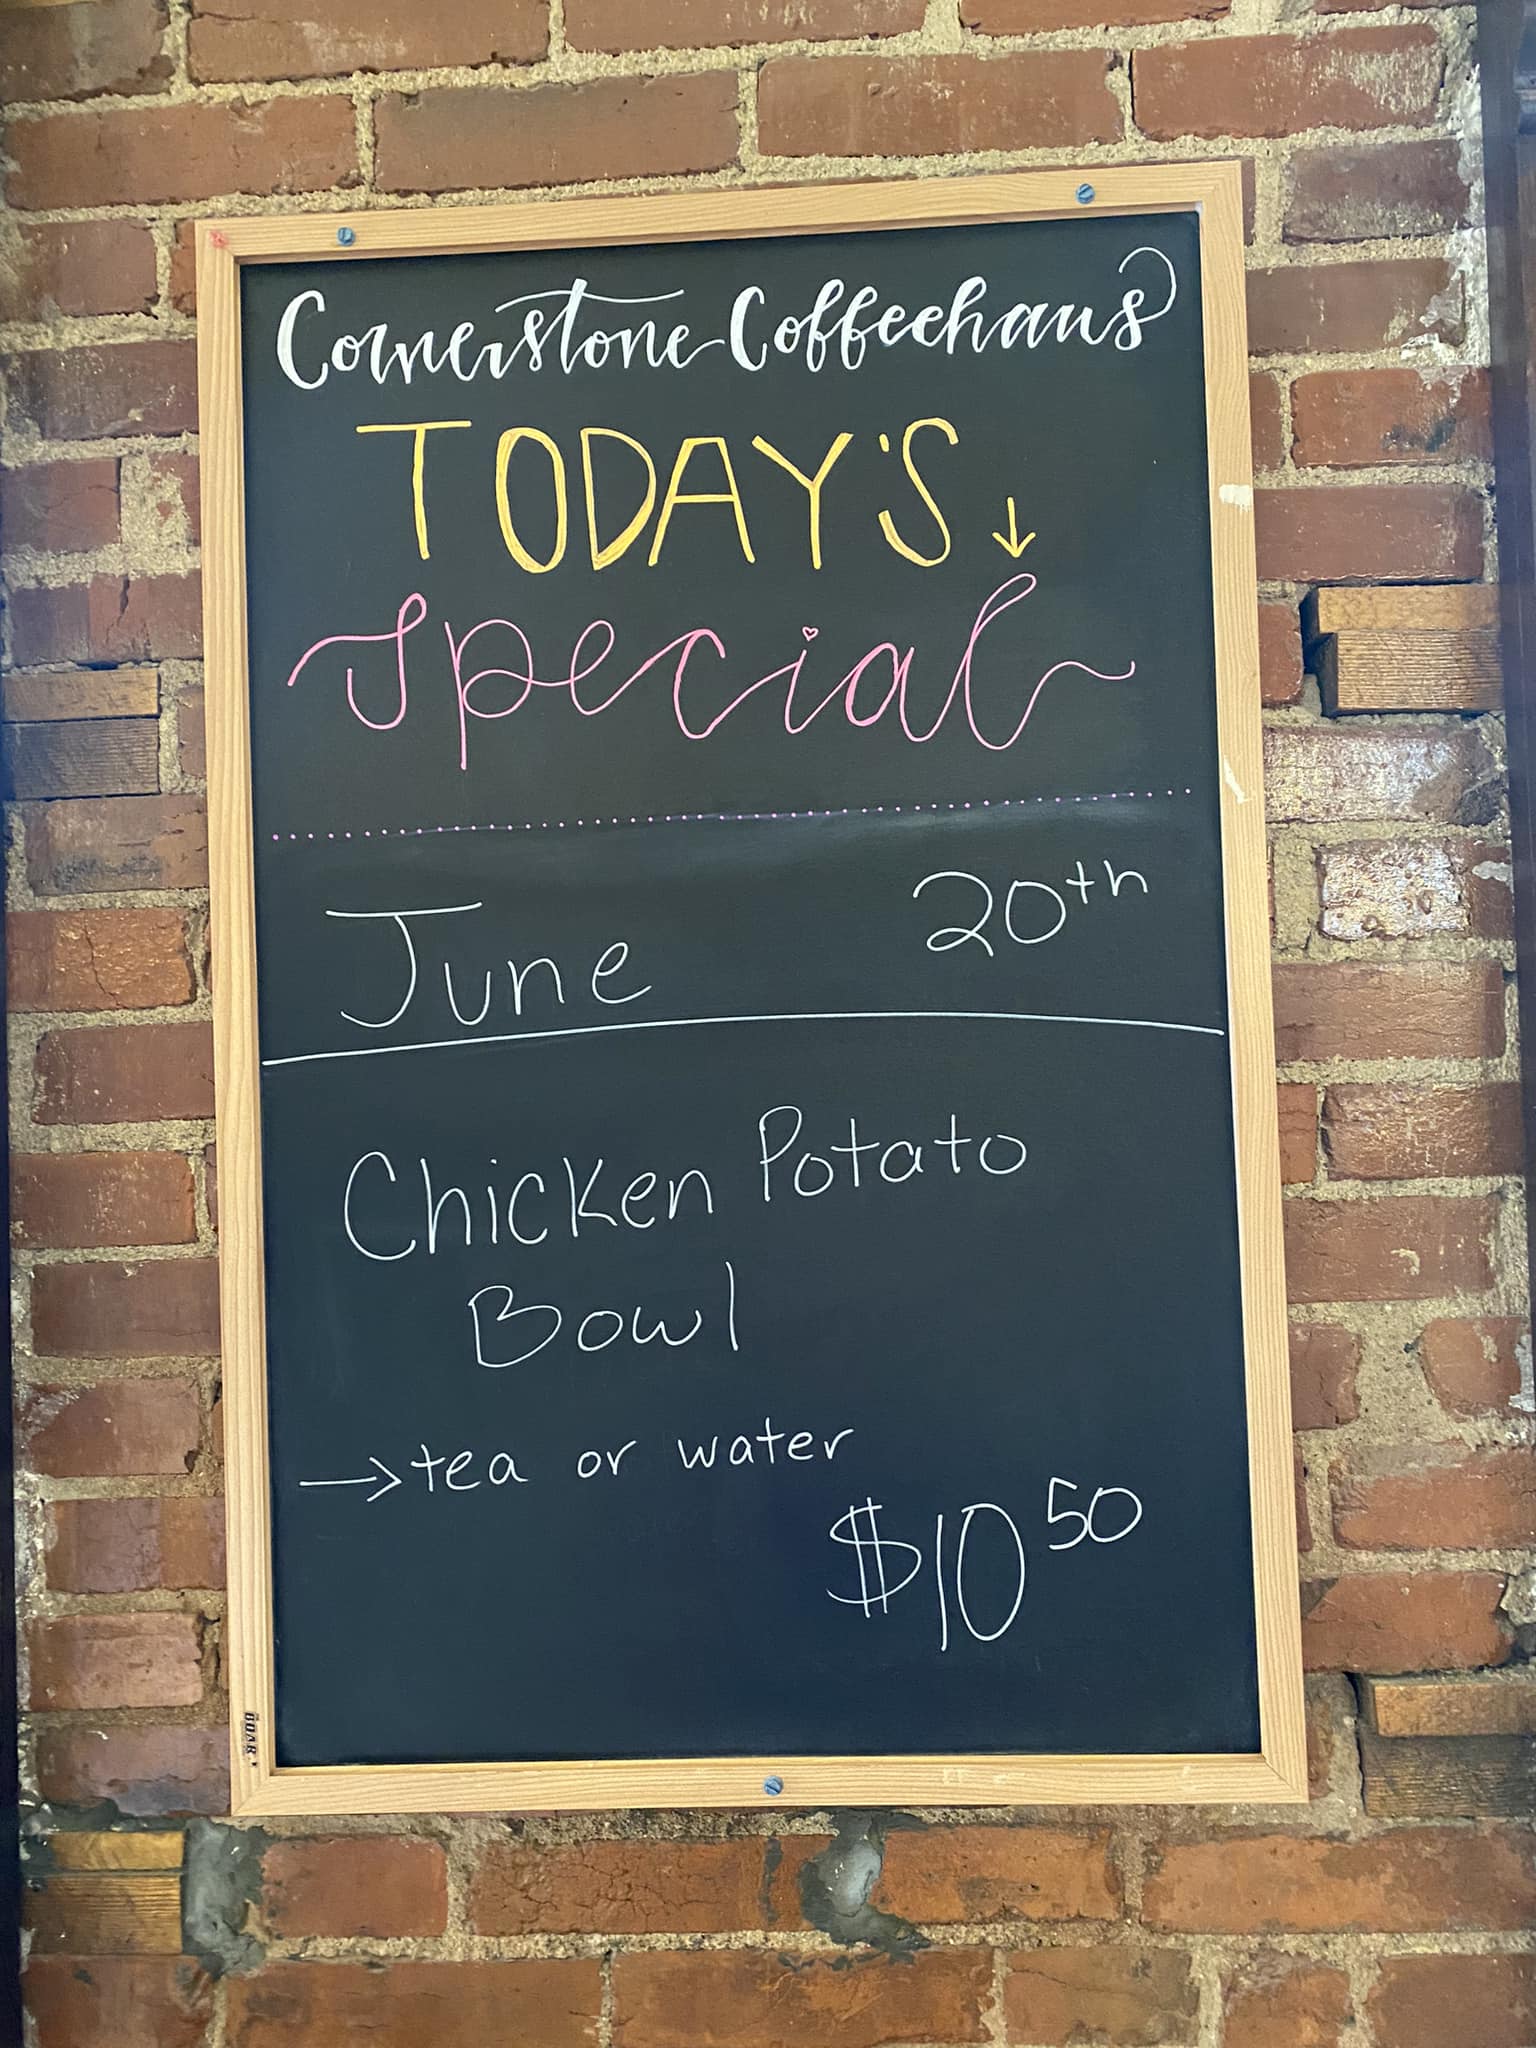 Cornerstone Coffeehaus
TODAY'S ↓
Special
June 20th
Chicken Potato
Bowl
→ tea or water
$10 50